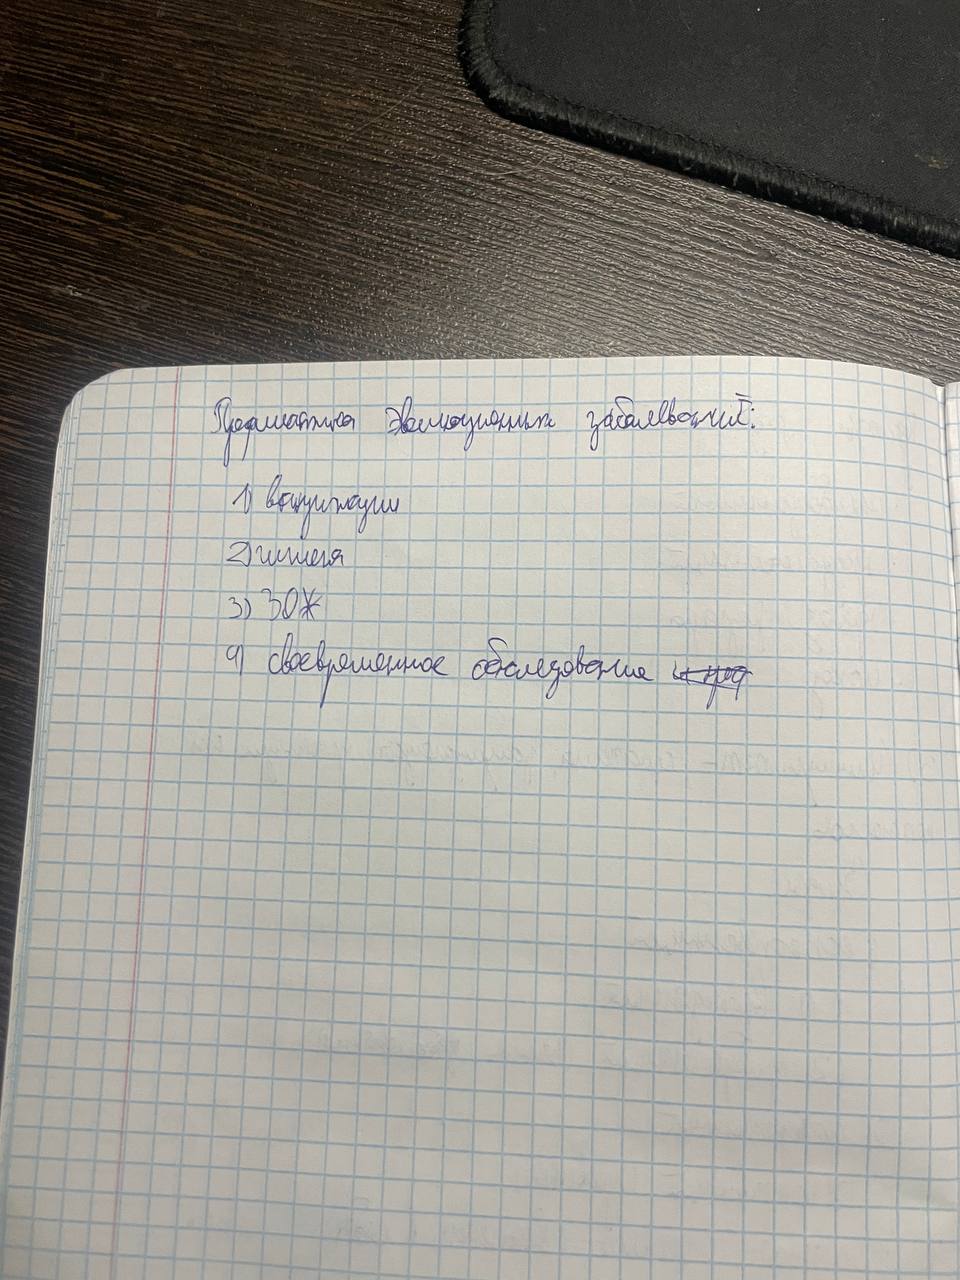 Профилактика эволюционных заболеваний:
1) вакцинации
2) гигиена
3) ЗОЖ
4) своевременное обследование